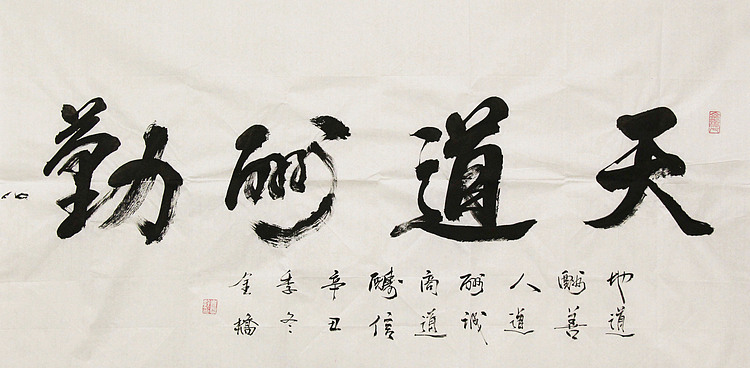 天道酬勤
地道
酬善
人道
酬诚
商道
醻信
辛丑
季冬
金橋